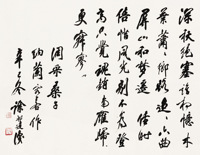 深秋絕塞誰相憶木
葉蕭蕭鄉路迢迢六曲
屏山和夢遙佳時
倍惜風光別不為登
高只覺魂銷南雁歸時
更寂寥
調采桑子
納蘭容若作
冬徐